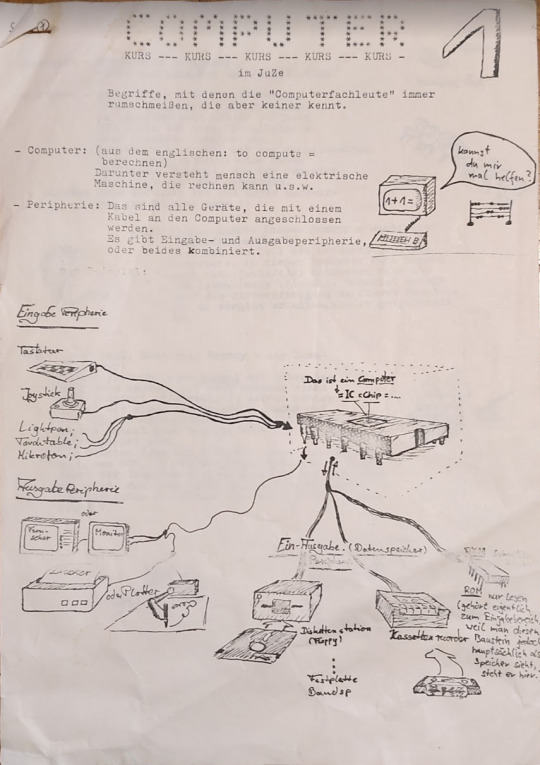 COMPUTER
1
KURS --- KURS --- KURS --- KURS --- KURS -
im JuZe
Begriffe, mit denon die "Computerfachleute" immer
rumschmeißen, die aber keiner kennt.
- Computer: (aus dem englischen: to compute =
berechnen)
Darunter versteht mensch eine elektrische
Maschine, die rechnen kann u.s.w.
kannst
du mir
mal helfen?
1+1=
- Peripherie: Das sind alle Geräte, die mit einem
Kabel an den Computer angeschlossen
werden.
Es gibt Eingabe- und Ausgabeperipherie,
oder beides kombiniert.
Eingabe Peripherie
Tastatur
Joystick
Lightpen;
Mikrofon;
Das ist ein Computer
= IC = Chip = ...
Ausgabe Peripherie
oder
Fern-
seher
Monitor
Drucker
oder Plotter
Ein-Ausgabe. (Datenspeicher)
Peripherie
Diskettenstation
(Floppy)
Festplatte
Kassettenrecorder
ROM nur Lesen
(gehört eigentlich
zum Eingabebereich,
weil man diesen
Baustein jedoch
hauptsächlich als
Speicher sieht,
steht er hier.